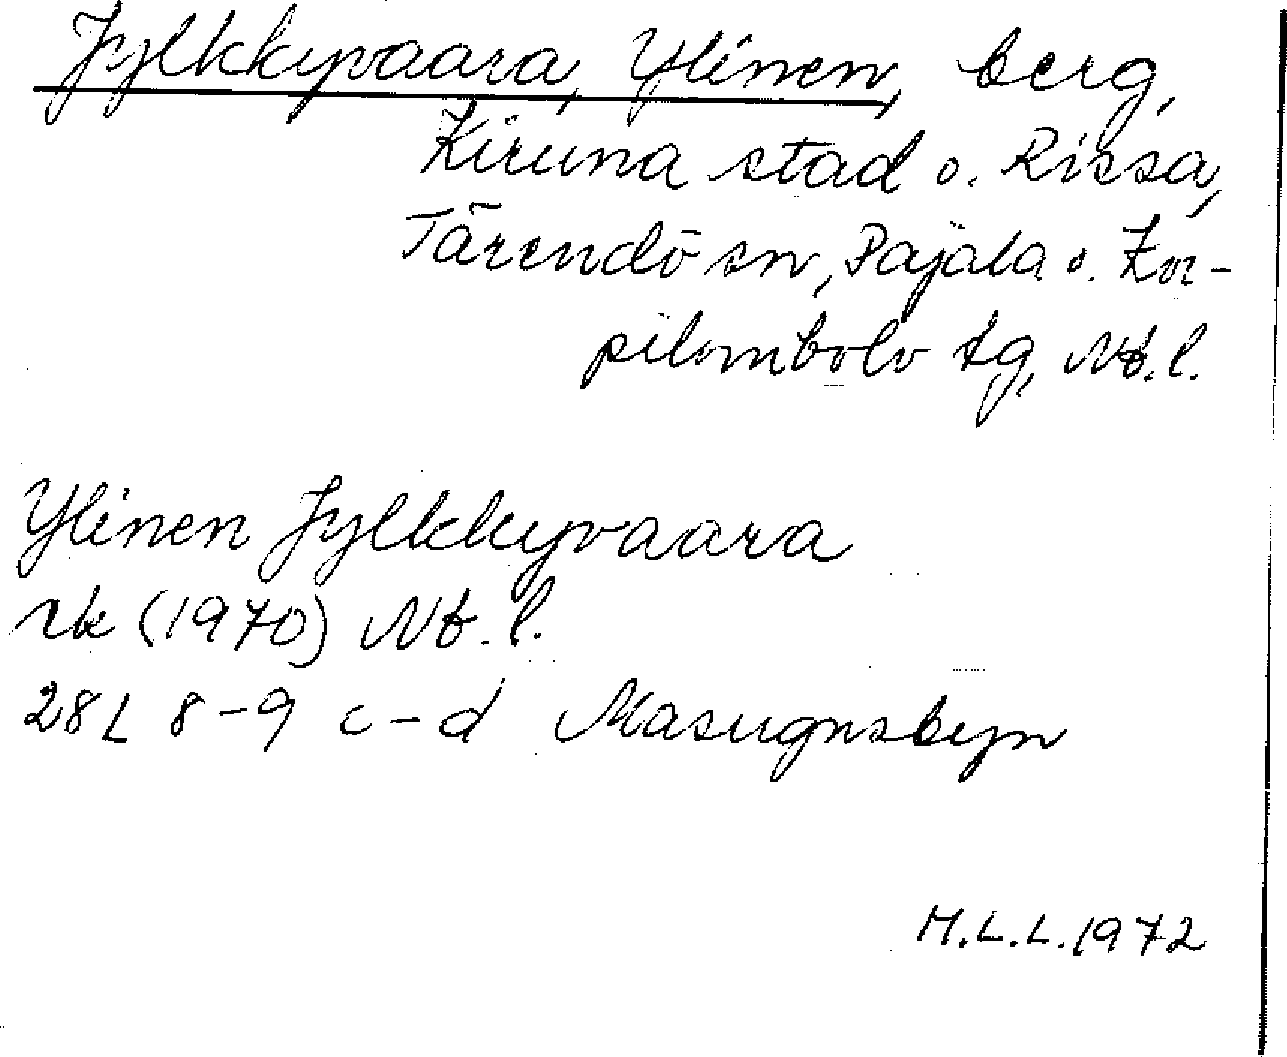 Jylkkyvaara, Ylinen, berg,
Kiruna stad o. Rissa,
Tärendö sn, Pajala o. Kor-
pilombolo tg, Nb.l.
Ylinen Jylkkyvaara
rk (1970) Nb.l.
28L 8-9 c-d Masugnsbyn
M.L.L. 1972